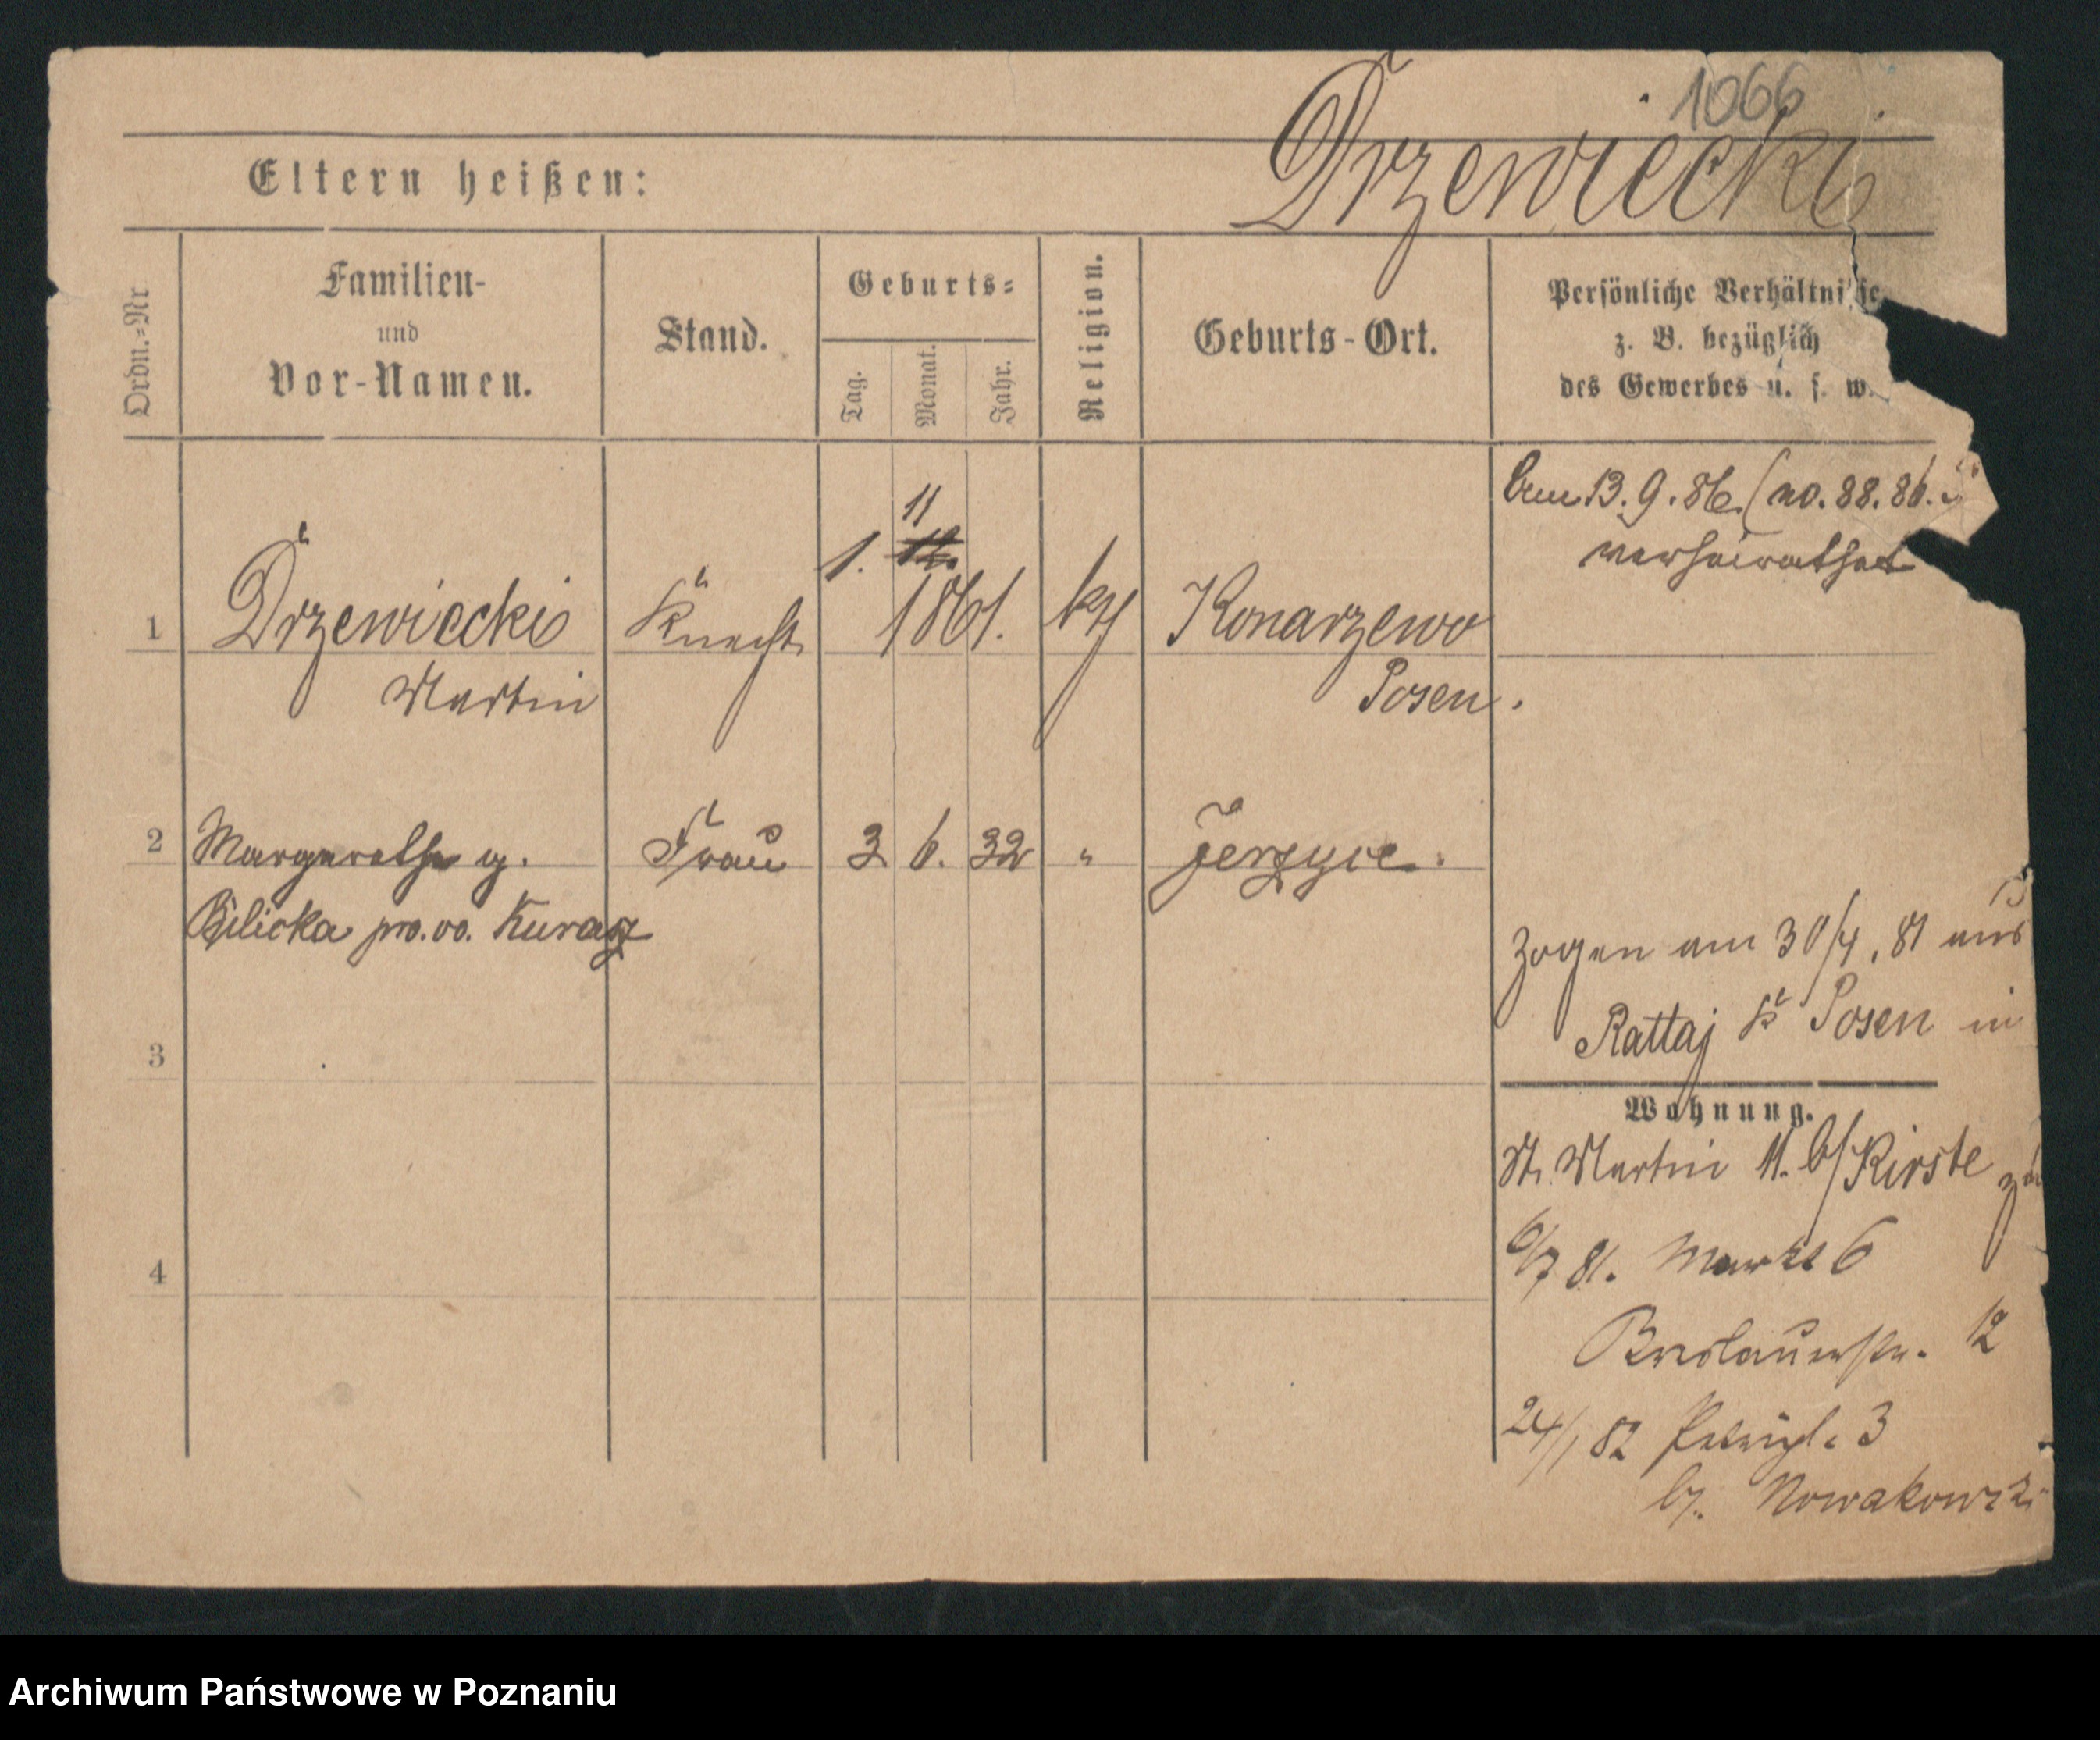 1066
Drzewiecki
Eltern heißen:
Ordn.=Nr
Familien-
und
Vor-Namen.
Stand.
Geburts=
Tag.
Monat.
Jahr.
Religion.
Geburts-Ort.
Persönliche Verhältnisse
z. B. bezüglich
des Gewerbes u. s. w.
Am 13.9.86 (no. 88.86.
verheirathet
11
1. 12.
1 Drzewiecki Knecht 1861. kth Konarzewo
Martin Posen.
2 Margarethe g. Frau 3 6. 32 " Jerzyce.
Bilicka pr. vo.
zogen am 30/4. 81 aus
Rattaj Kr Posen in
3
Wohnung.
St. Martin 11. b/Kirste
6/7 81. Markt 6
4
Breslauerstr. 12
24/1 82 3
by. Nowakowski
Archiwum Państwowe w Poznaniu